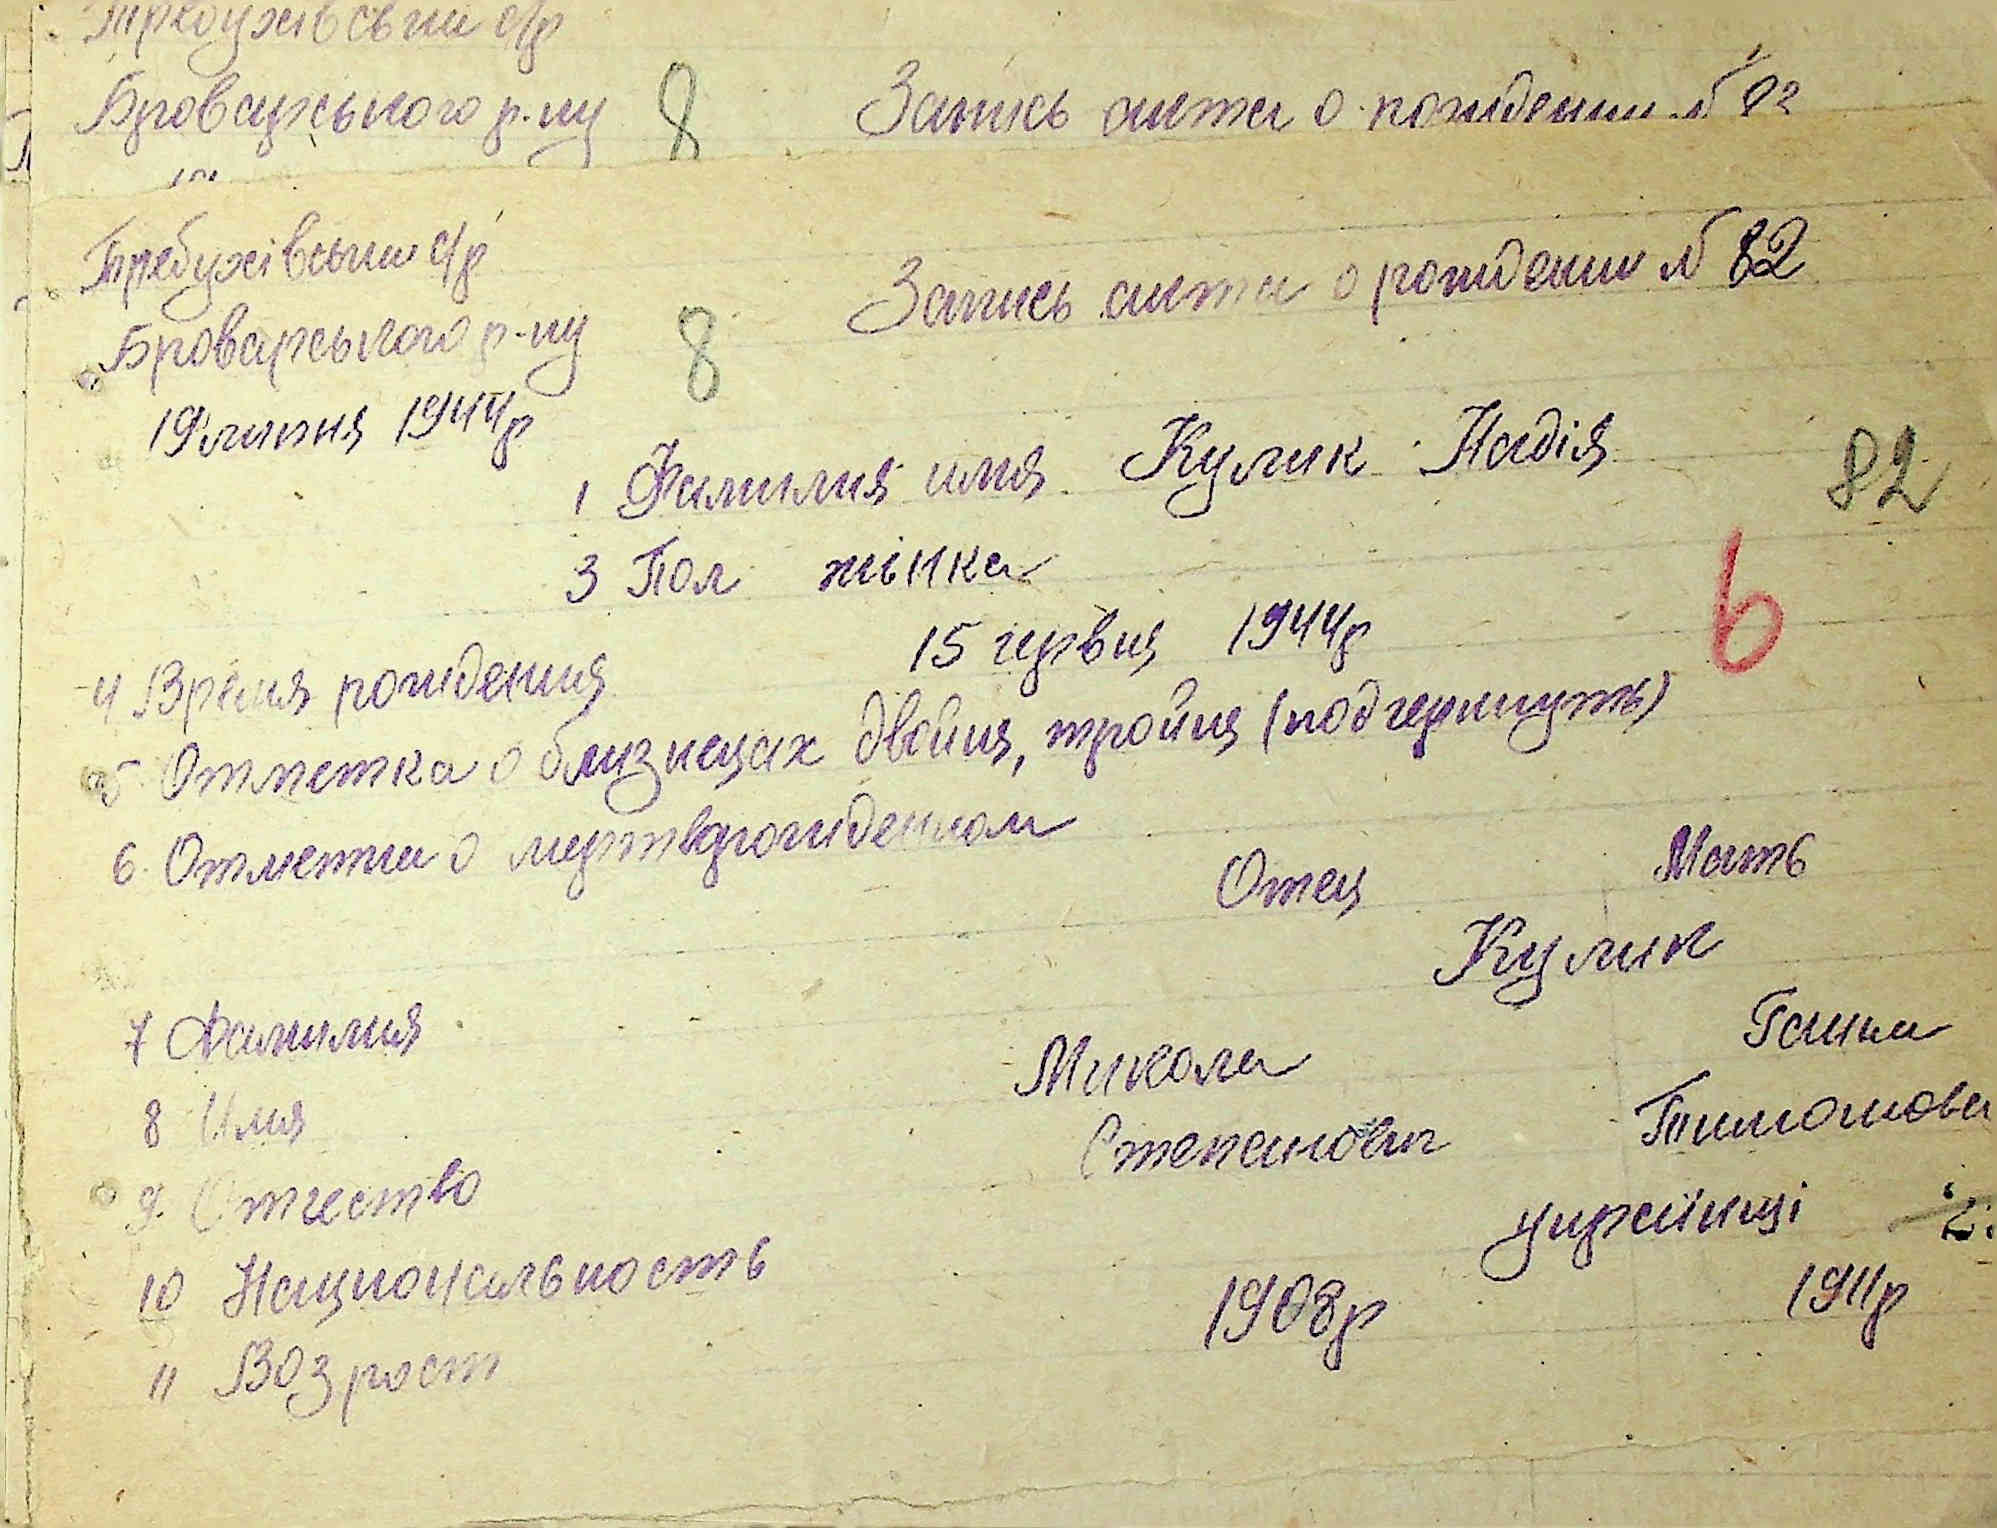 Требухівський с/р
Броварського р-ну 8 Запись акта о рождении № 82
Требухівський с/р
Броварського р-ну 8 Запись акта о рождении № 82
19 липня 1944р
1 Фамилия имя Кулик Надія
82
3 Пол жінка
6
4 Время рождения 15 червня 1944р
5 Отметка о близнецах двойня, тройня (подчеркнуть)
6. Отметка о мертворожденном
Отец Мать
7 Фамилия Кулик
8 Имя Микола Ганна
9. Отчество Степанович Тимошова
10 Национальность українці
11 Возраст 1908р 1911р